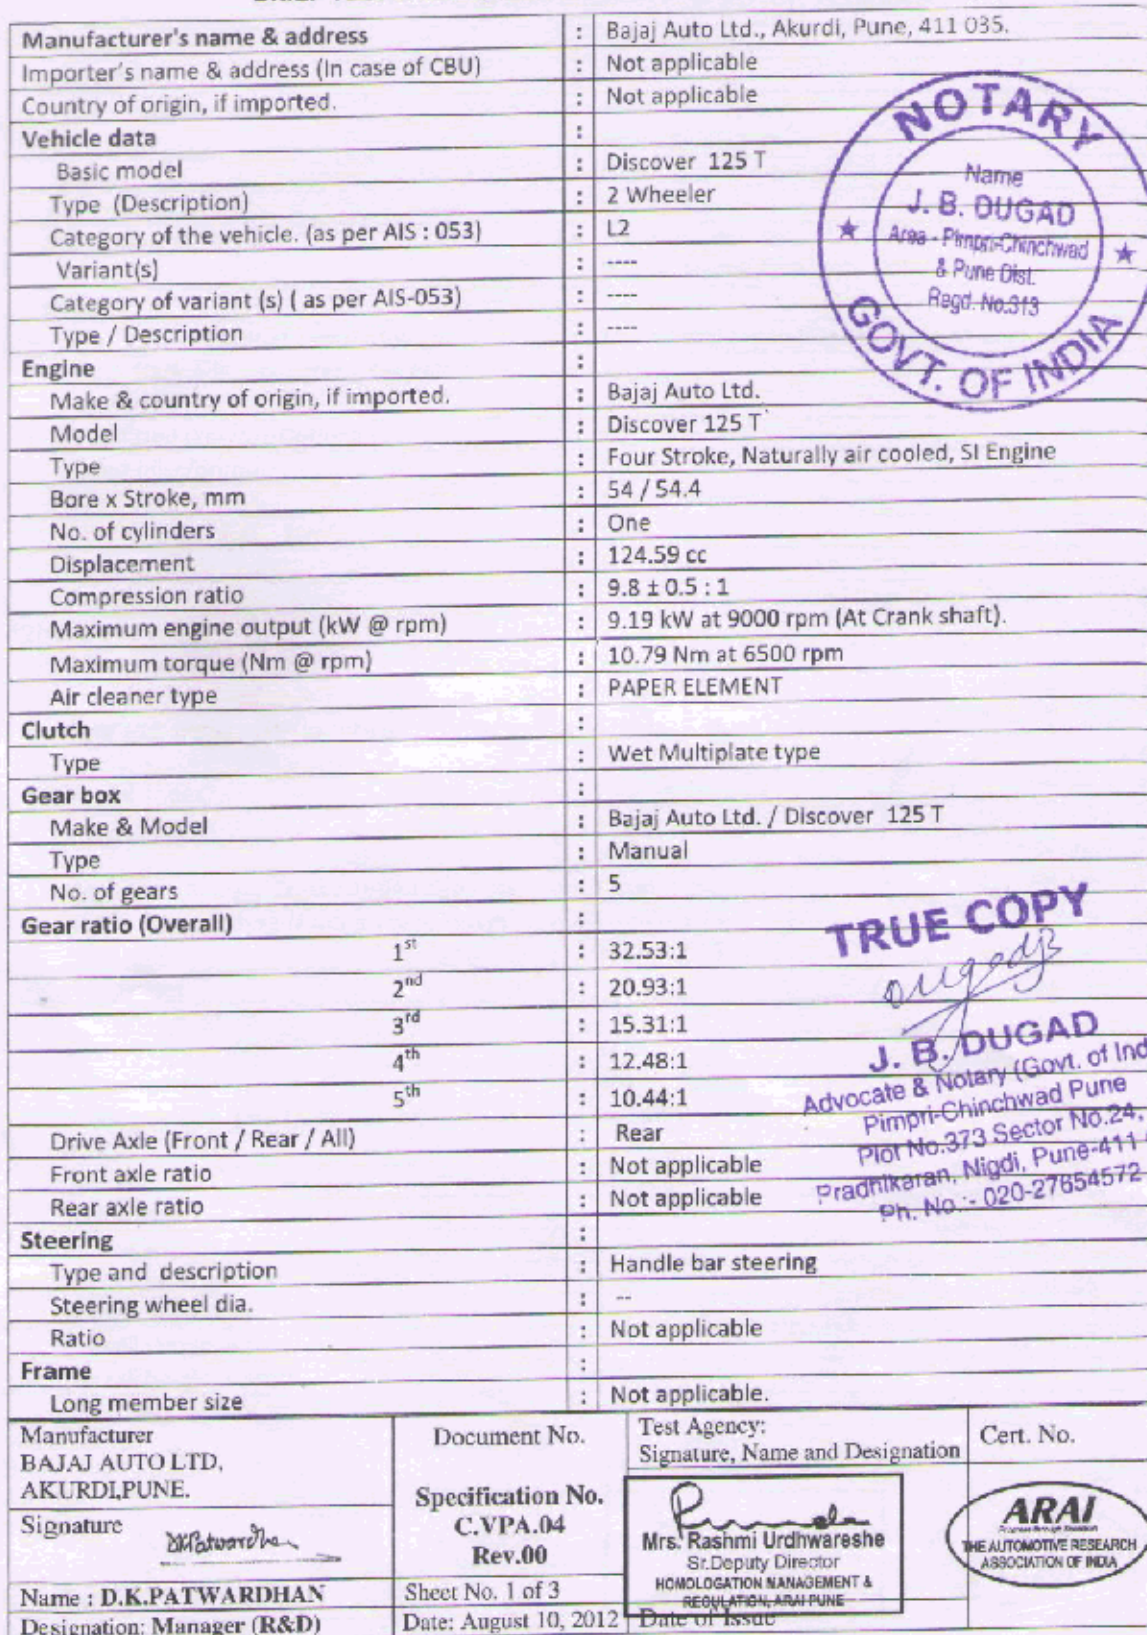 Manufacturer's name & address : Bajaj Auto Ltd., Akurdi, Pune, 411 035.
Importer's name & address (In case of CBU) : Not applicable
Country of origin, if imported. : Not applicable
Vehicle data :
Basic model : Discover 125 T
Type (Description) : 2 Wheeler
Category of the vehicle. (as per AIS : 053) : L2
Variant(s) : ----
Category of variant (s) ( as per AIS-053) : ----
Type / Description : ----
Engine :
Make & country of origin, if imported. : Bajaj Auto Ltd.
Model : Discover 125 T
Type : Four Stroke, Naturally air cooled, SI Engine
Bore x Stroke, mm : 54 / 54.4
No. of cylinders : One
Displacement : 124.59 cc
Compression ratio : 9.8 ± 0.5 : 1
Maximum engine output (kW @ rpm) : 9.19 kW at 9000 rpm (At Crank shaft).
Maximum torque (Nm @ rpm) : 10.79 Nm at 6500 rpm
Air cleaner type : PAPER ELEMENT
Clutch :
Type : Wet Multiplate type
Gear box :
Make & Model : Bajaj Auto Ltd. / Discover 125 T
Type : Manual
No. of gears : 5
Gear ratio (Overall) :
1st : 32.53:1
2nd : 20.93:1
3rd : 15.31:1
4th : 12.48:1
5th : 10.44:1
Drive Axle (Front / Rear / All) : Rear
Front axle ratio : Not applicable
Rear axle ratio : Not applicable
Steering :
Type and description : Handle bar steering
Steering wheel dia. : --
Ratio : Not applicable
Frame :
Long member size : Not applicable.
NOTARY
Name
J. B. DUGAD
Area - Pimpri-Chinchwad
& Pune Dist.
Regd. No.313
GOVT. OF INDIA
TRUE COPY
J. B. DUGAD
Advocate & Notary (Govt. of Ind
Pimpri-Chinchwad Pune
Plot No.373 Sector No.24,
Pradhikaran, Nigdi, Pune-411
Ph. No :- 020-27654572
Manufacturer
BAJAJ AUTO LTD,
AKURDI,PUNE.
Signature
DKPatwardhan
Name : D.K.PATWARDHAN
Designation: Manager (R&D)
Document No.
Specification No.
C.VPA.04
Rev.00
Sheet No. 1 of 3
Date: August 10, 2012
Test Agency:
Signature, Name and Designation
Mrs. Rashmi Urdhwareshe
Sr.Deputy Director
HOMOLOGATION MANAGEMENT &
REGULATION, ARAI PUNE
Date of Issue
Cert. No.
ARAI
THE AUTOMOTIVE RESEARCH
ASSOCIATION OF INDIA